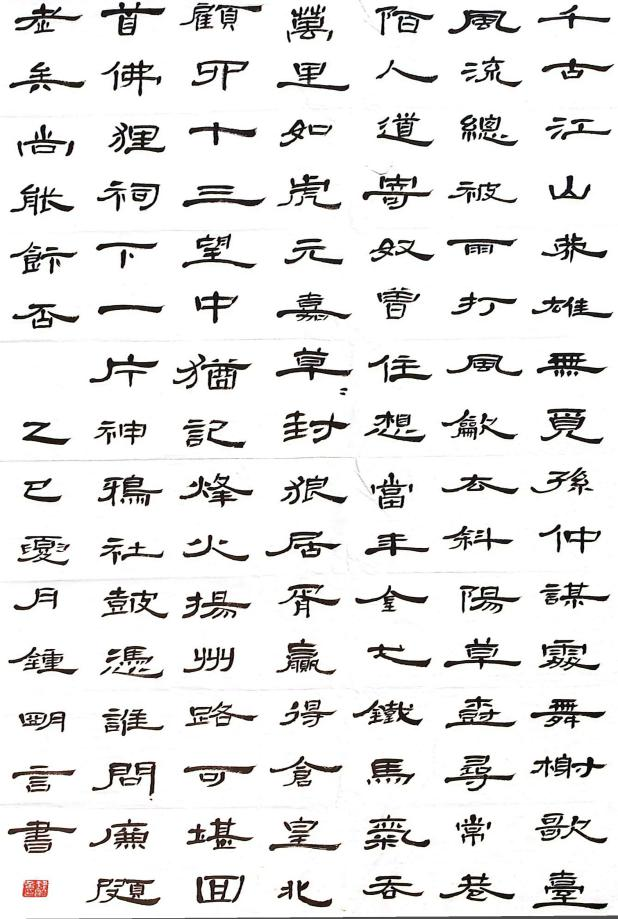 千古江山英雄無覓孫仲謀處舞榭歌臺
風流總被雨打風龡去斜陽草尌尋常巷
陌人道寄奴曾住想當年金戈鐵馬氣吞
萬里如虎元嘉草〻封狼居胥贏得倉皇北
顧四十三望中猶記烽火揚州路可堪回
首佛狸祠下一片神鴉社鼓憑誰問廉頗
老矣尚能飯否 乙巳夏月鍾明言書